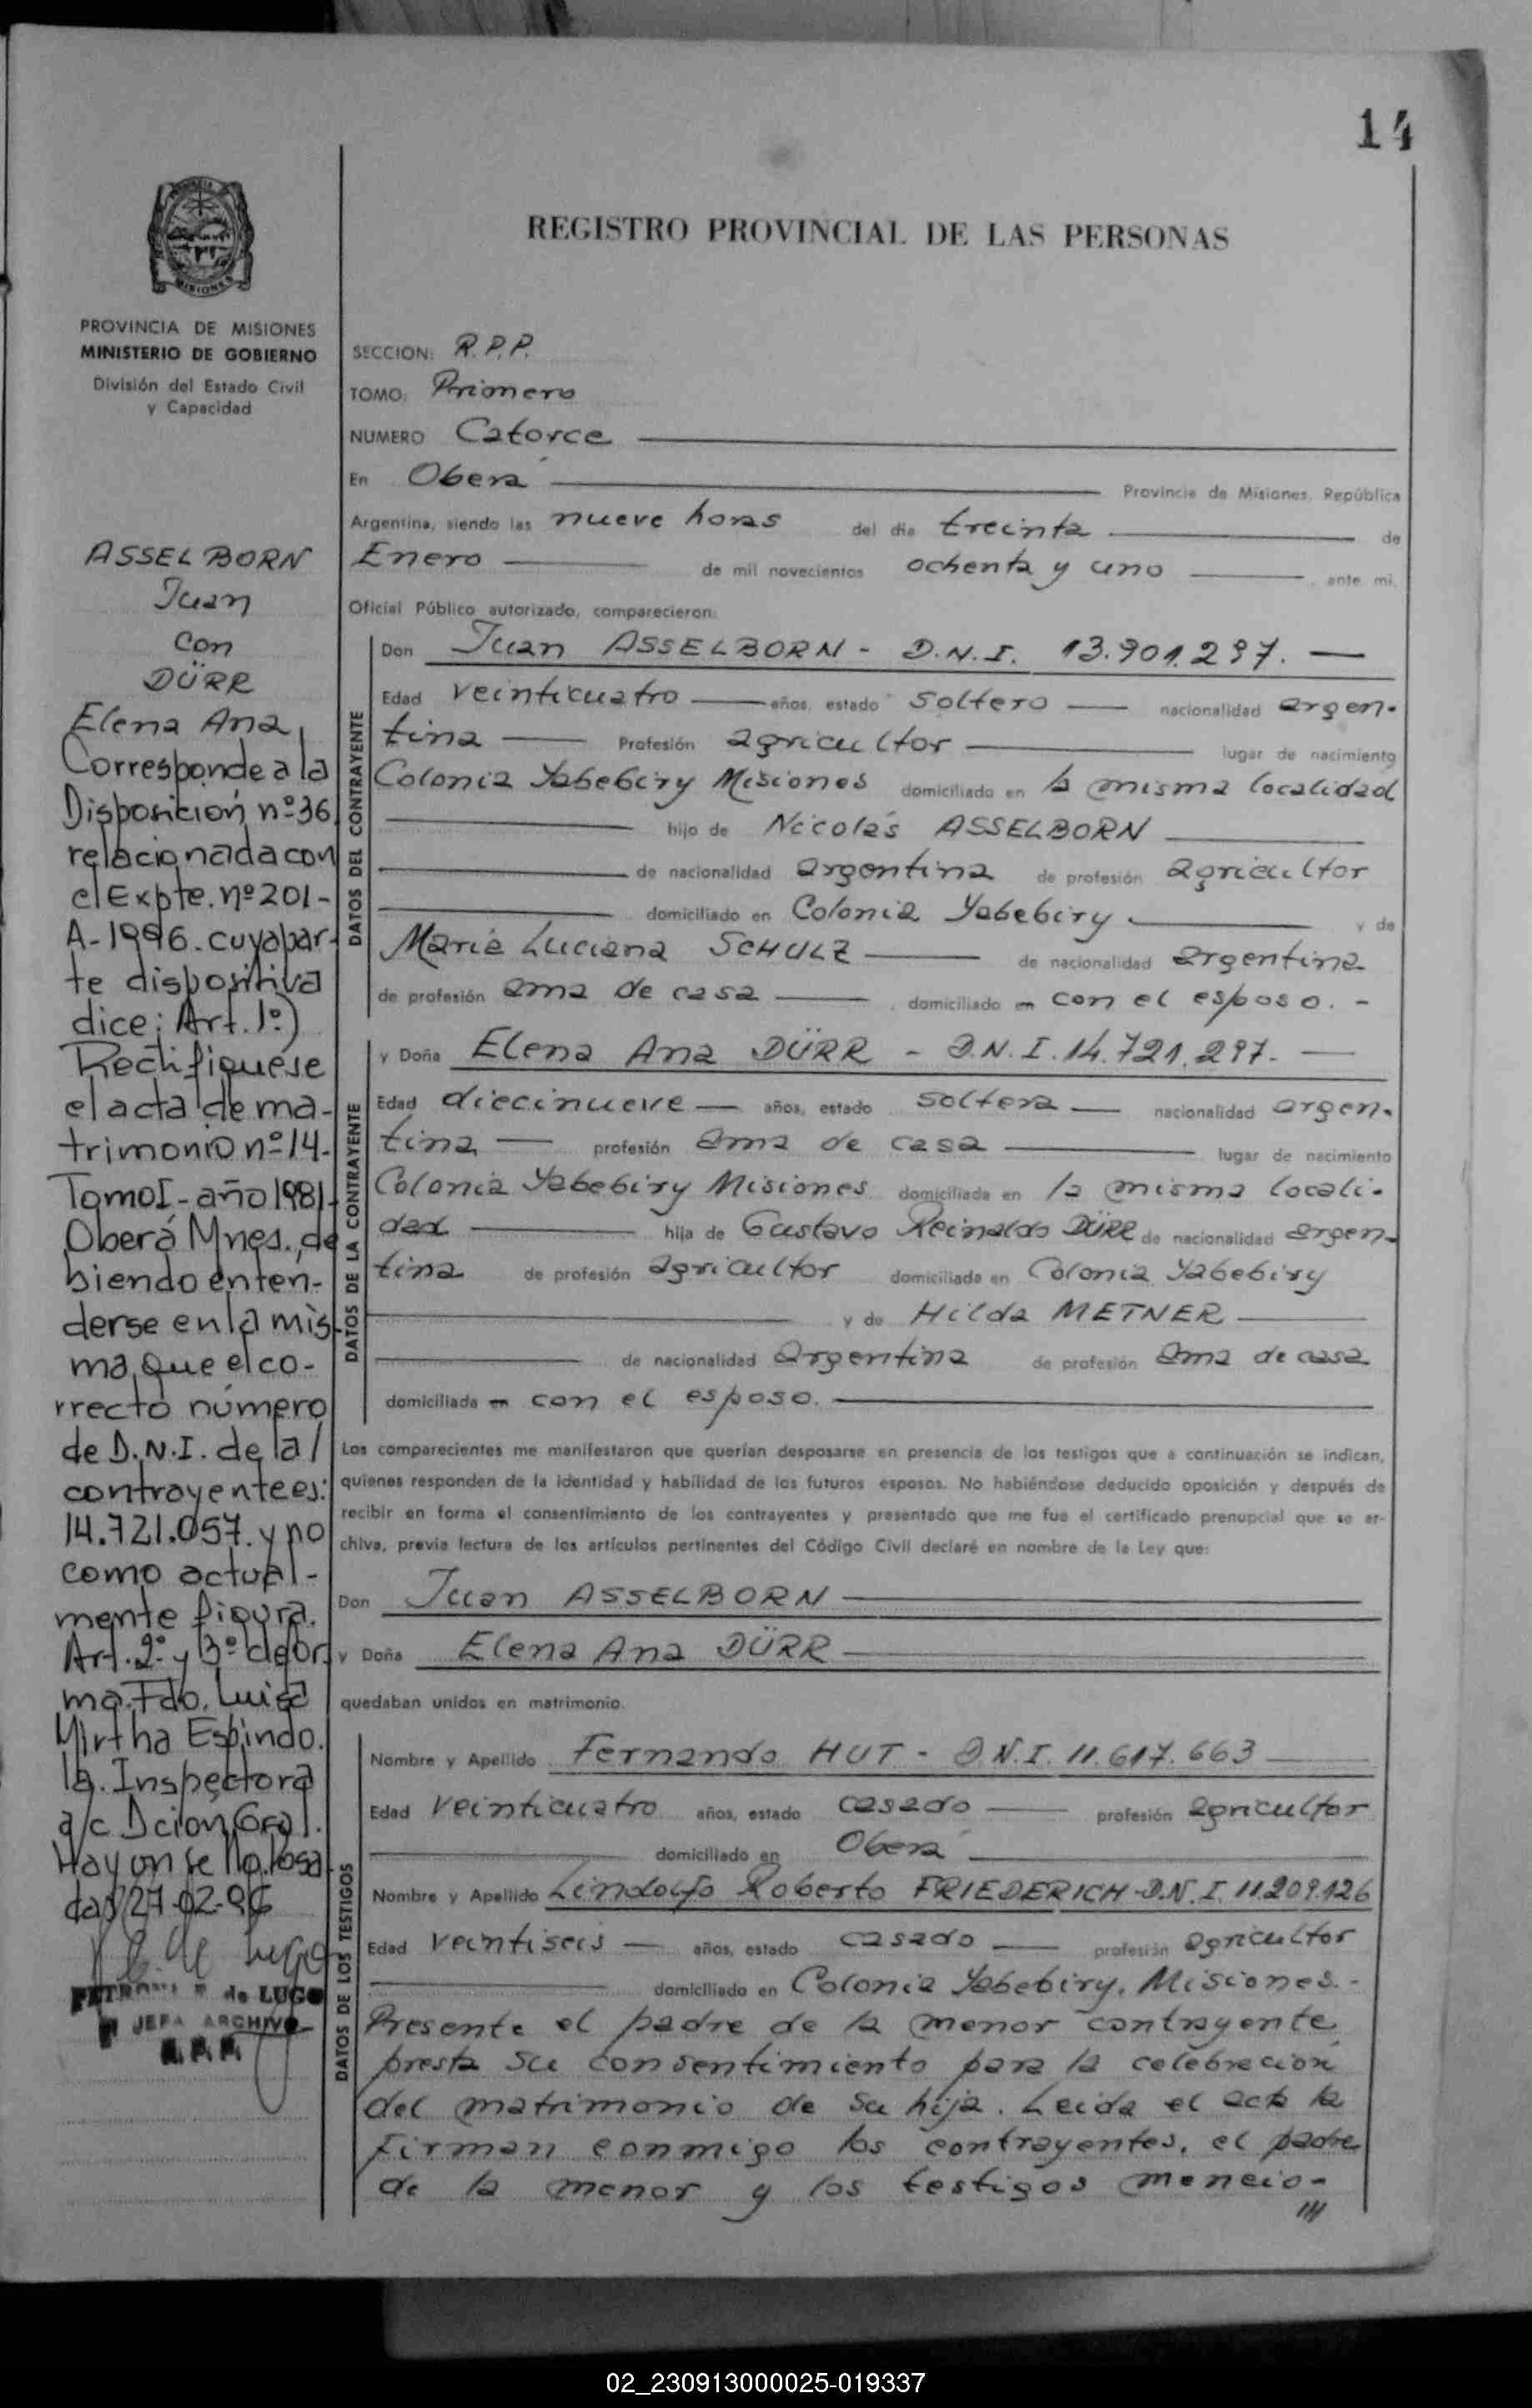 14
REGISTRO PROVINCIAL DE LAS PERSONAS
PROVINCIA DE MISIONES
MINISTERIO DE GOBIERNO
División del Estado Civil
y Capacidad
ASSELBORN
Juan
con
DÜRR
Elena Ana
Corresponde a la
Disposición nº 36
relacionada con
el Expte. nº 201-
A-1996. cuya par-
te dispositiva
dice: Art. 1º)
Rectifíquese
el acta de ma-
trimonio nº 14-
Tomo I - año 1981-
Oberá Mnes., de
biendo enten-
derse en la mis-
ma, que el co-
rrecto número
de D.N.I. de la /
contrayente es:
14.721.057. y no
como actual-
mente figura.
Art. 2º y 3º de or
ma. Fdo. Luisa
Mirtha Espindo.
la. Inspectora
a/c Dción Gral.
Hay un sello. Posa
das 27-02-96
de Lugo
de LUGO
JEFA ARCHIVO
SECCION: R.P.P.
TOMO: Primero
NUMERO Catorce
En Oberá Provincia de Misiones, República
Argentina, siendo las nueve horas del día treinta de
Enero de mil novecientos ochenta y uno, ante mi,
Oficial Público autorizado, comparecieron:
DATOS DEL CONTRAYENTE
Don Juan ASSELBORN - D.N.I. 13.901.297. —
Edad veinticuatro — años, estado soltero — nacionalidad argen-
tina — Profesión agricultor — lugar de nacimiento
Colonia Yabebiry Misiones domiciliado en la misma localidad
hijo de Nicolás ASSELBORN
de nacionalidad argentina de profesión agricultor
domiciliado en Colonia Yabebiry y de
María Luciana SCHULZ — de nacionalidad argentina
de profesión ama de casa — domiciliado en con el esposo. -
DATOS DE LA CONTRAYENTE
y Doña Elena Ana DÜRR - D.N.I. 14.721.297. —
Edad diecinueve — años, estado soltera — nacionalidad argen-
tina — profesión ama de casa — lugar de nacimiento
Colonia Yabebiry Misiones domiciliada en la misma locali-
dad — hija de Gustavo Reinaldo DÜRR de nacionalidad argen-
tina de profesión agricultor domiciliado en Colonia Yabebiry
y de Hilda METNER
de nacionalidad argentina de profesión ama de casa
domiciliada en con el esposo.
Los comparecientes me manifestaron que querían desposarse en presencia de los testigos que a continuación se indican,
quienes responden de la identidad y habilidad de los futuros esposos. No habiéndose deducido oposición y después de
recibir en forma el consentimiento de los contrayentes y presentado que me fue el certificado prenupcial que se ar-
chiva, previa lectura de los artículos pertinentes del Código Civil declaré en nombre de la Ley que:
Don Juan ASSELBORN
y Doña Elena Ana DÜRR
quedaban unidos en matrimonio.
DATOS DE LOS TESTIGOS
Nombre y Apellido Fernando HUT - D.N.I. 11.617.663
Edad veinticuatro años, estado casado — profesión agricultor
domiciliado en Oberá
Nombre y Apellido Lindolfo Roberto FRIEDERICH - D.N.I. 11.209.126
Edad veintiseis — años, estado casado — profesión agricultor
domiciliado en Colonia Yabebiry, Misiones. -
Presente el padre de la menor contrayente
presta su consentimiento para la celebración
del matrimonio de su hija. Leida el acta la
firman conmigo los contrayentes, el padre
de la menor y los testigos mencio-
///
02_230913000025-019337